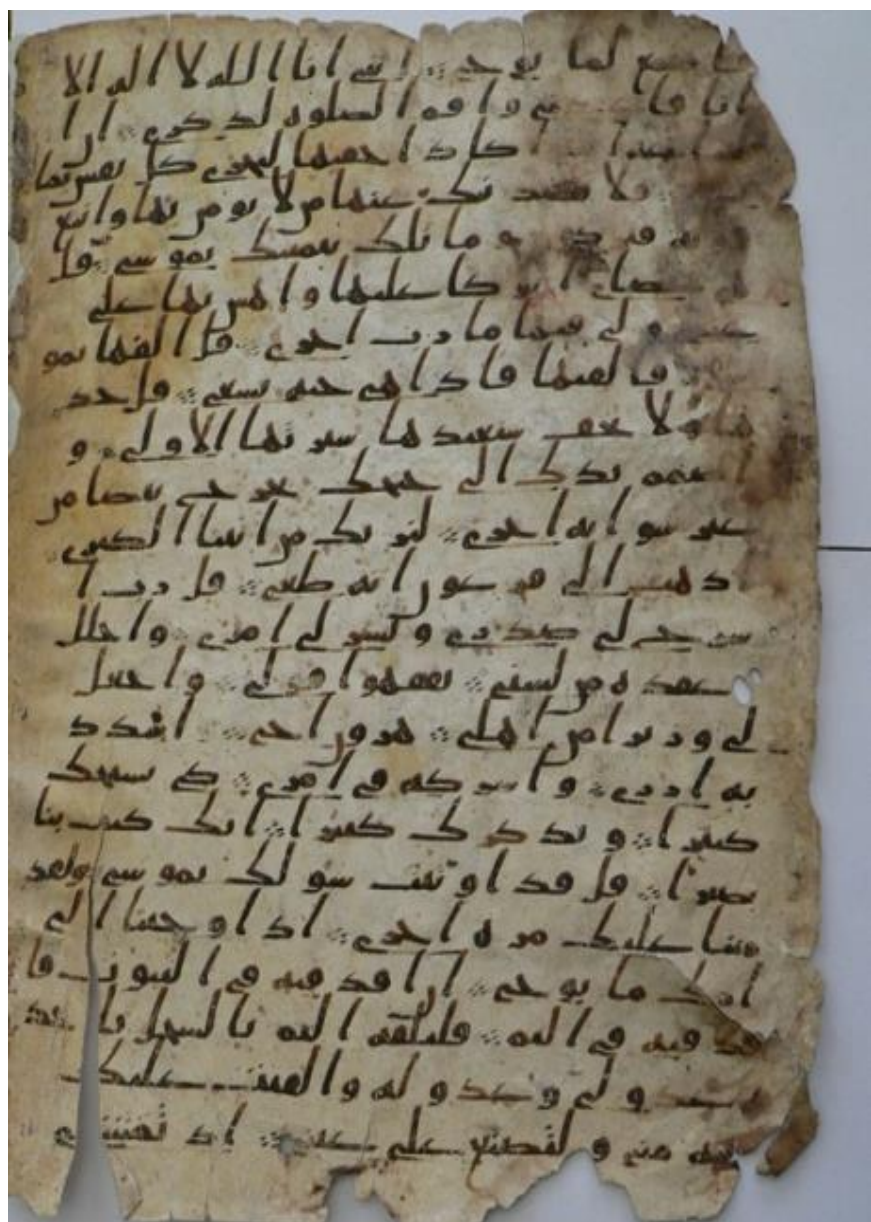 فاستمع لما يوحى انني انا الله لا اله الا
انا فاعبدني واقم الصلوه لذكري ان ا
اكاد اخفيها لتجزى كل نفس بما
فلا يصدنك عنها من لا يومن بها واتبع
وما تلك بيمينك يموسى قل
هي عصاي اتوكا عليها واهش بها على
غنمي ولي فيها مارب اخرى قل القها يمو
سى فالقيها فاذا هي حيه تسعى قل خذ
ها ولا تخف سنعيدها سيرتها الاولى و
اضمم يدك الى جنحك تخرج بيضا من
غير سو ايه اخرى لنريك من ايتنا الكبرى
اذهب الى فرعون انه طغى قل رب ا
شرح لي صدري ويسر لي امري واحلل
عقده من لسني يفقهوا قولي واجعل
لي وزيرا من اهلي هرون اخي اشدد
به ازري واشركه في امري كي نسبحك
كثيرا ونذكرك كثيرا انك كنت بنا
بصيرا قل قد اوتيت سولك يموسى ولقد
مننا عليك مره اخرى اذ اوحينا الى
امك ما يوحى ان اقذفيه في التبوت فا
قذفيه في اليم فليلقه اليم بالسحل ياخذ
ه عدو لي وعدو له والقيت عليك
محبه مني ولتصنع على عيني اذ تمشي